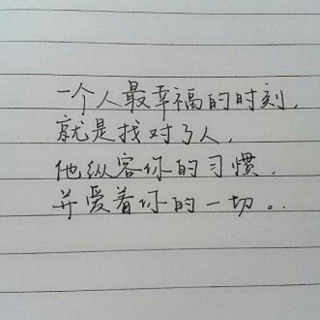 一个人最幸福的时刻,
就是找对了人,
他纵容你的习惯,
并爱着你的一切。..